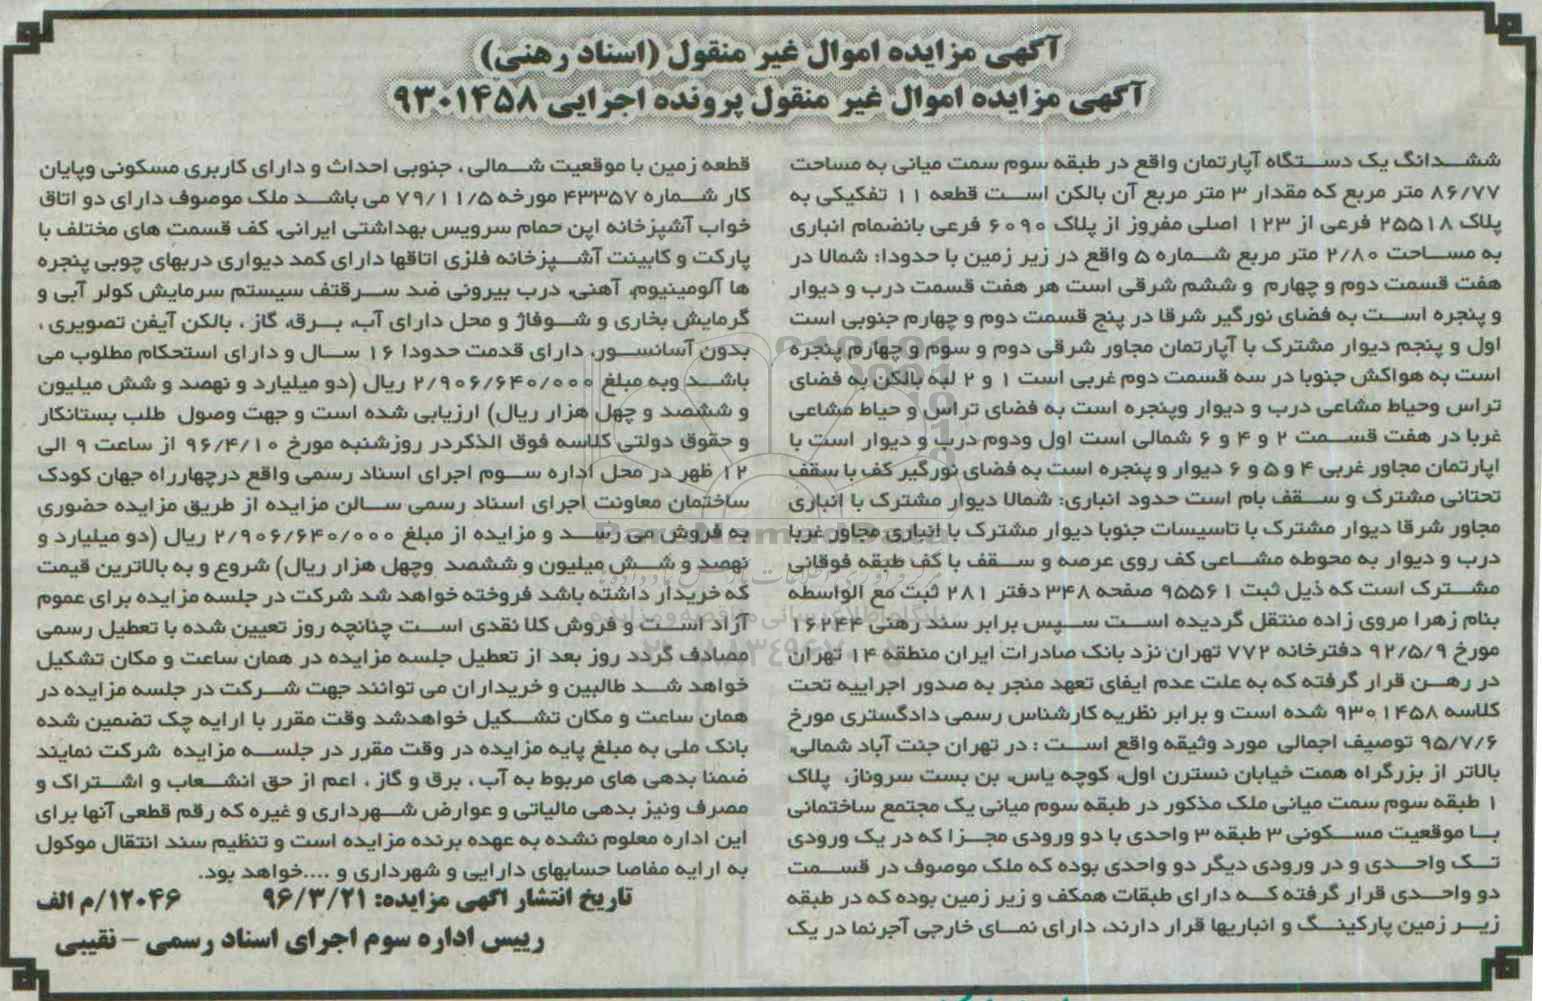 آگهی مزایده اموال غیر منقول (اسناد رهنی)
آگهی مزایده اموال غیر منقول پرونده اجرایی ۹۳۰۱۴۵۸
ششـدانگ یک دسـتگاه آپارتمان واقع در طبقه سوم سمت میانی به مساحت
۸۶/۷۷ متر مربع که مقدار ۳ متر مربع آن بالکن اسـت قطعه ۱۱ تفکیکی به
پلاک ۲۵۵۱۸ فرعی از ۱۲۳ اصلی مفروز از پلاک ۶۰۹۰ فرعی بانضمام انباری
به مسـاحت ۲/۸۰ متر مربع شـماره ۵ واقع در زیر زمین با حدودا: شمالا در
هفت قسمت دوم و چهارم و ششم شرقی است هر هفت قسمت درب و دیوار
و پنجره اسـت به فضای نورگیر شرقا در پنج قسمت دوم و چهارم جنوبی است
اول و پنجم دیوار مشترک با آپارتمان مجاور شرقی دوم و سوم و چهارم پنجره
است به هواکش جنوبا در سه قسمت دوم غربی است ۱ و ۲ لبه بالکن به فضای
تراس وحیاط مشاعی درب و دیوار وپنجره است به فضای تراس و حیاط مشاعی
غربا در هفت قسـمت ۲ و ۴ و ۶ شمالی است اول ودوم درب و دیوار است با
اپارتمان مجاور غربی ۴ و ۵ و ۶ دیوار و پنجره است به فضای نورگیر کف با سقف
تحتانی مشترک و سـقف بام است حدود انباری: شمالا دیوار مشترک با انباری
مجاور شرقا دیوار مشترک با تاسیسات جنوبا دیوار مشترک با انباری مجاور غربا
درب و دیوار به محوطه مشـاعی کف روی عرصه و سـقف با کف طبقه فوقانی
مشـترک است که ذیل ثبت ۹۵۵۶۱ صفحه ۳۴۸ دفتر ۲۸۱ ثبت مع الواسطه
بنام زهرا مروی زاده منتقل گردیده اسـت سـپس برابر سند رهنی ۱۶۲۴۴
مورخ ۹۲/۵/۹ دفترخانه ۷۷۲ تهران نزد بانک صادرات ایران منطقه ۱۴ تهران
در رهـن قرار گرفته که به علت عدم ایفای تعهد منجر به صدور اجراییه تحت
کلاسه ۹۳۰۱۴۵۸ شده است و برابر نظریه کارشناس رسمی دادگستری مورخ
۹۵/۷/۶ توصیف اجمالی مورد وثیقه واقع اسـت : در تهران جنت آباد شمالی،
بالاتر از بزرگراه همت خیابان نسترن اول، کوچه یاس، بن بست سروناز، پلاک
۱ طبقه سوم سمت میانی ملک مذکور در طبقه سوم میانی یک مجتمع ساختمانی
بـا موقعیت مسـکونی ۳ طبقه ۳ واحدی با دو ورودی مجـزا که در یک ورودی
تـک واحـدی و در ورودی دیگر دو واحدی بوده که ملک موصوف در قسـمت
دو واحـدی قرار گرفته کـه دارای طبقات همکف و زیر زمین بوده که در طبقه
زیـر زمین پارکینـگ و انباریها قرار دارند، دارای نمـای خارجی آجرنما در یک
قطعه زمین با موقعیت شـمالی ، جنوبی احداث و دارای کاربری مسکونی وپایان
کار شـماره ۴۳۳۵۷ مورخه ۷۹/۱۱/۵ می باشـد ملک موصوف دارای دو اتاق
خواب آشپزخانه اپن حمام سرویس بهداشتی ایرانی، کف قسمت های مختلف با
پارکت و کابینت آشـپزخانه فلزی اتاقها دارای کمد دیواری دربهای چوبی پنجره
ها آلومینیوم، آهنی، درب بیرونی ضد سـرقتف سیستم سرمایش کولر آبی و
گرمایش بخاری و شـوفاژ و محل دارای آب، بـرق، گاز ، بالکن آیفن تصویری ،
بدون آسانسـور، دارای قدمت حدودا ۱۶ سـال و دارای استحکام مطلوب می
باشـد وبه مبلغ ۲/۹۰۶/۶۴۰/۰۰۰ ریال (دو میلیارد و نهصد و شش میلیون
و ششصد و چهل هزار ریال) ارزیابی شده است و جهت وصول طلب بستانکار
و حقوق دولتی کلاسه فوق الذکردر روزشنبه مورخ ۹۶/۴/۱۰ از ساعت ۹ الی
۱۲ ظهر در محل اداره سـوم اجرای اسناد رسمی واقع درچهارراه جهان کودک
ساختمان معاونت اجرای اسناد رسمی سـالن مزایده از طریق مزایده حضوری
به فروش می رسـد و مزایده از مبلغ ۲/۹۰۶/۶۴۰/۰۰۰ ریال (دو میلیارد و
نهصد و شـش میلیون و ششصد وچهل هزار ریال) شروع و به بالاترین قیمت
که خریدار داشته باشد فروخته خواهد شد شرکت در جلسه مزایده برای عموم
آزاد اسـت و فروش کلا نقدی اسـت چنانچه روز تعیین شده با تعطیل رسمی
مصادف گردد روز بعد از تعطیل جلسه مزایده در همان ساعت و مکان تشکیل
خواهد شـد طالبین و خریداران می توانند جهت شـرکت در جلسه مزایده در
همان ساعت و مکان تشـکیل خواهدشد وقت مقرر با ارایه چک تضمین شده
بانک ملی به مبلغ پایه مزایده در وقت مقرر در جلسـه مزایده شرکت نمایند
ضمنا بدهی های مربوط به آب ، برق و گاز ، اعم از حق انشـعاب و اشـتراک و
مصرف ونیز بدهی مالیاتی و عوارض شـهرداری و غیره که رقم قطعی آنها برای
این اداره معلوم نشده به عهده برنده مزایده است و تنظیم سند انتقال موکول
به ارایه مفاصا حسابهای دارایی و شهرداری و ....خواهد بود.
تاریخ انتشار آگهی مزایده: ۹۶/۳/۲۱ ۱۲۰۴۶/م الف
رییس اداره سوم اجرای اسناد رسمی - نقیبی